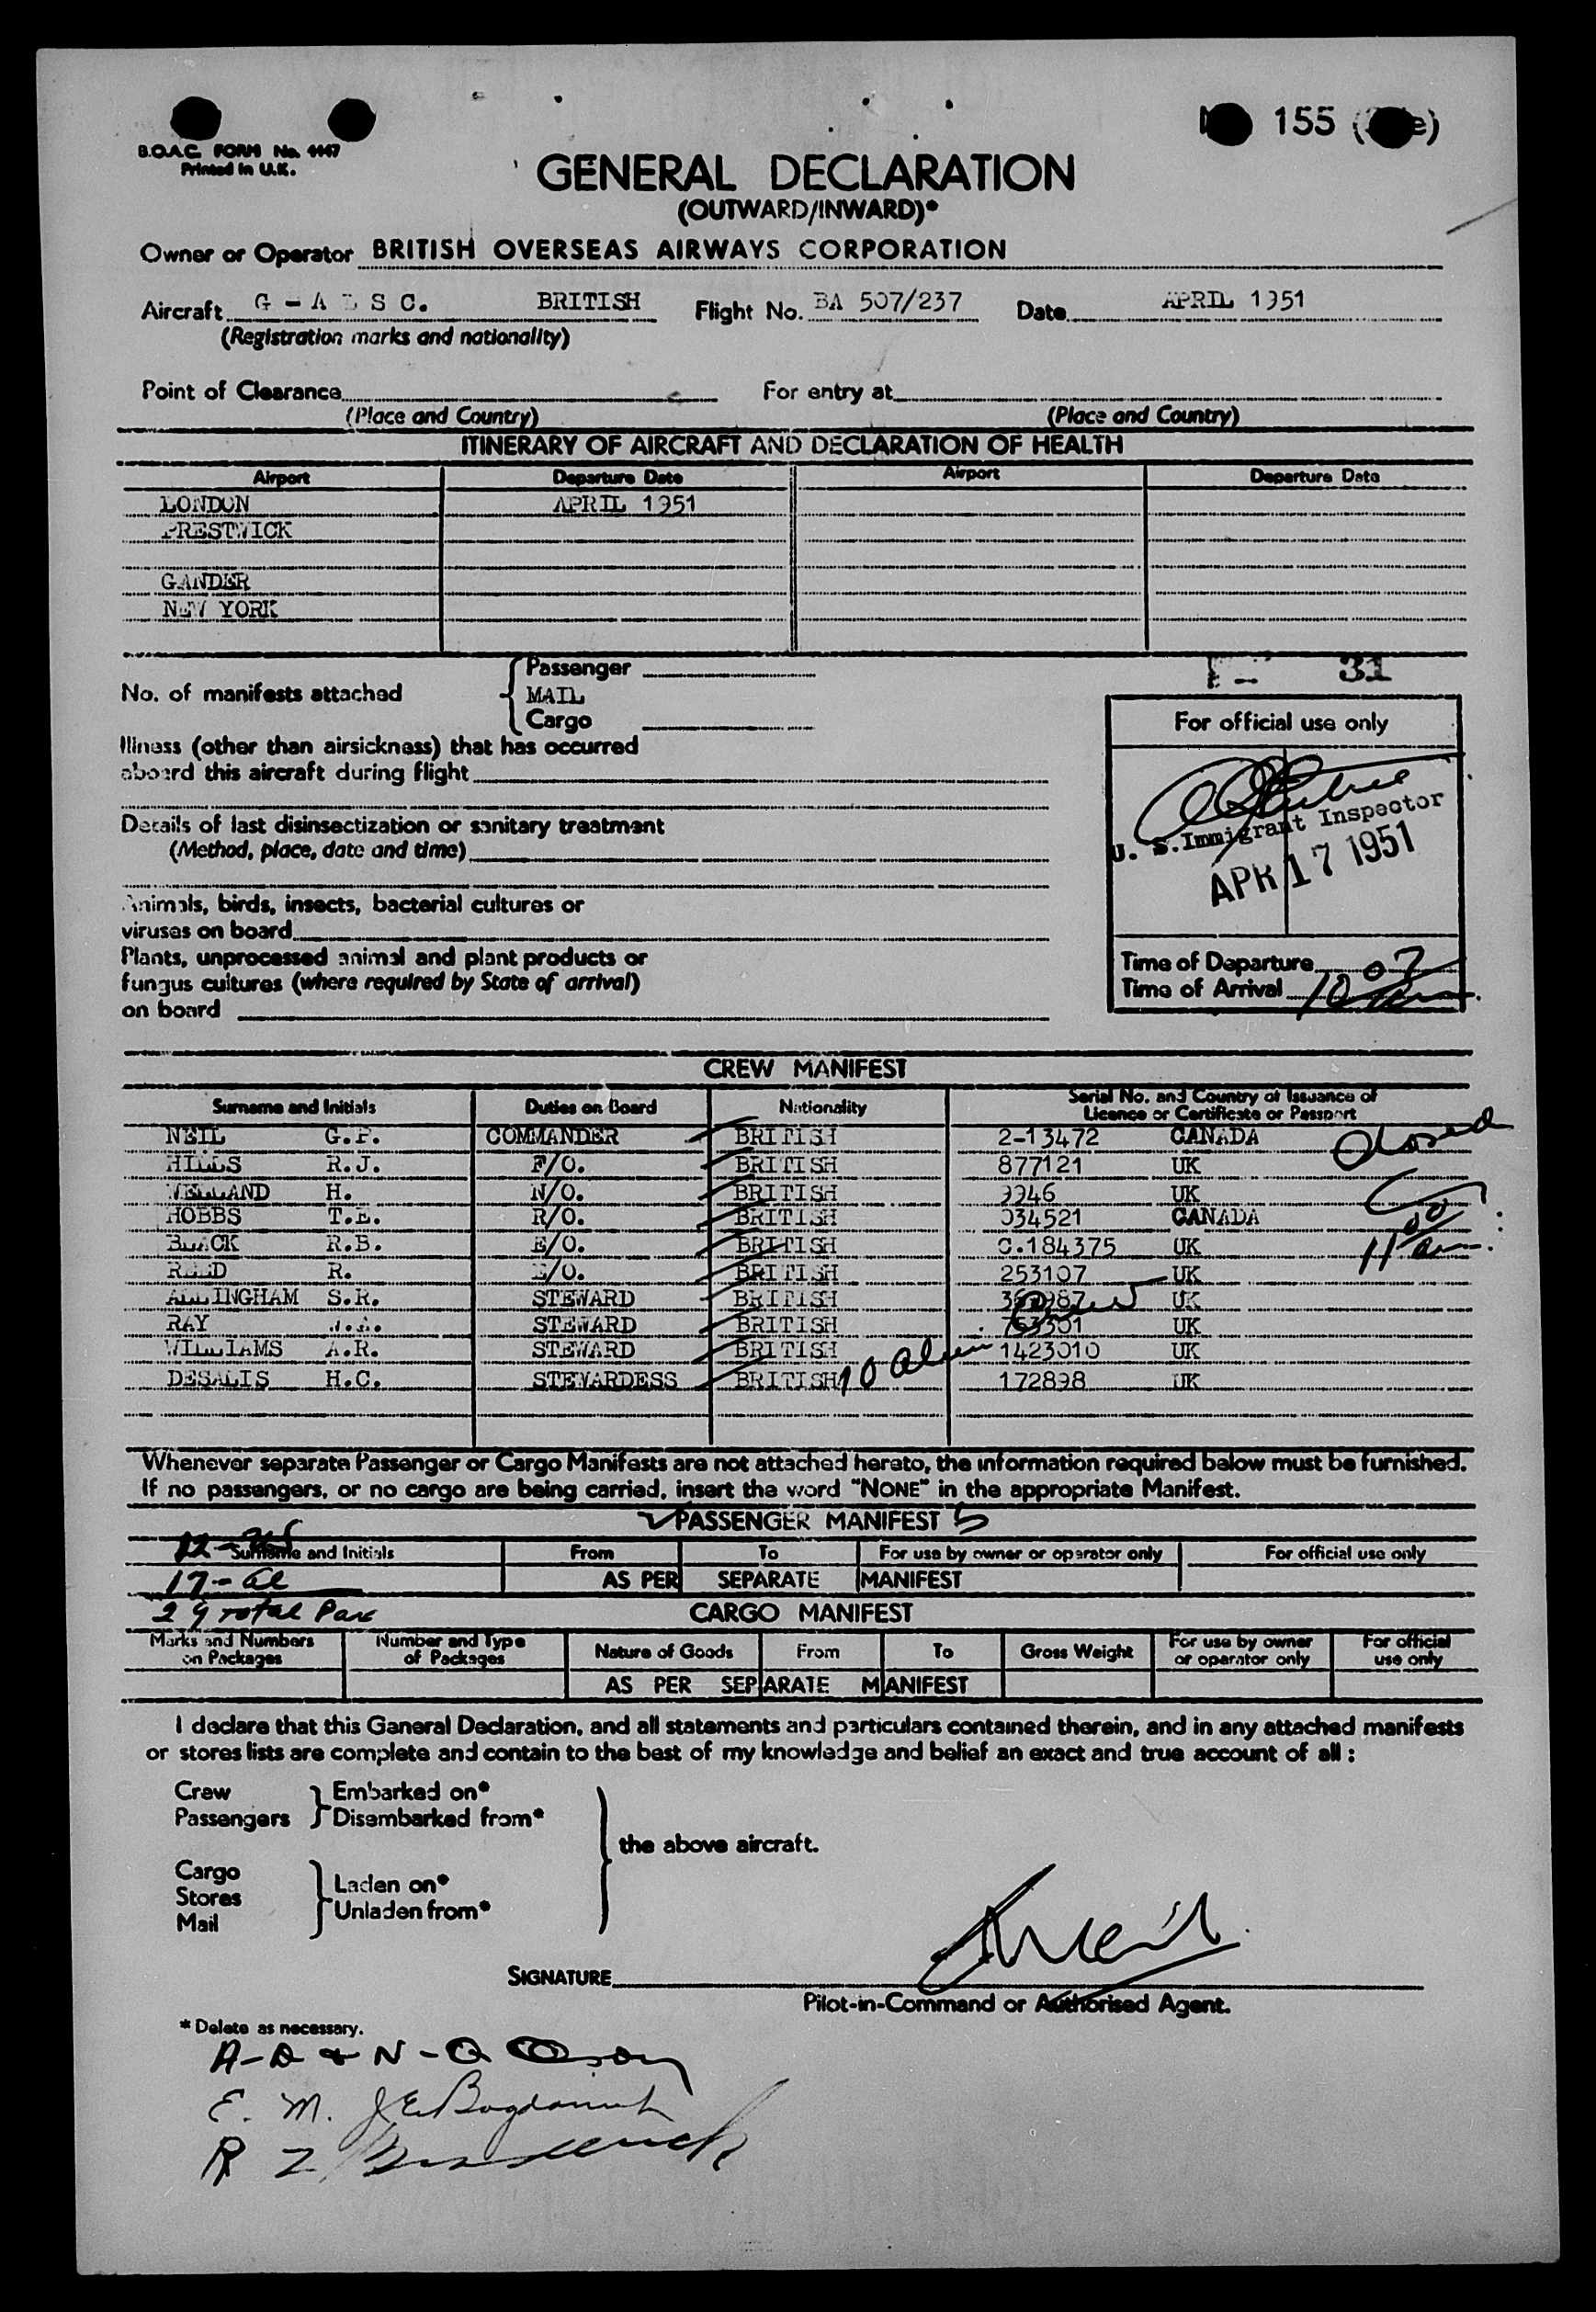 B.O.A.C. FORM No. 4447
Printed in U.K.
155
GENERAL DECLARATION
(OUTWARD/INWARD)*
Owner or Operator BRITISH OVERSEAS AIRWAYS CORPORATION
Aircraft G - A S C. BRITISH Flight No. BA 507/237 Date APRIL 1951
(Registration marks and nationality)
Point of Clearance For entry at
(Place and Country) (Place and Country)
ITINERARY OF AIRCRAFT AND DECLARATION OF HEALTH
Airport Departure Date Airport Departure Date
LONDON APRIL 1951
PRESTWICK
GANDER
NEW YORK
31
No. of manifests attached
Passenger
MAIL
Cargo
Illness (other than airsickness) that has occurred
aboard this aircraft during flight
Details of last disinsectization or sanitary treatment
(Method, place, date and time)
Animals, birds, insects, bacterial cultures or
viruses on board
Plants, unprocessed animal and plant products or
fungus cultures (where required by State of arrival)
on board
For official use only
U. S. Immigrant Inspector
APR 17 1951
Time of Departure
Time of Arrival 10 07 am
CREW MANIFEST
Surname and Initials Duties on Board Nationality Serial No. and Country of Issuance of
Licence or Certificate or Passport
NEIL G.P. COMMANDER BRITISH 2-13472 CANADA Closed
HILLS R.J. F/O. BRITISH 877121 UK
WELLAND H. N/O. BRITISH 9946 UK
HOBBS T.E. R/O. BRITISH 034521 CANADA
BLACK R.B. E/O. BRITISH C.184375 UK 11 00 am.
REED R. E/O. BRITISH 253107 UK
ALLINGHAM S.R. STEWARD BRITISH UK
RAY STEWARD BRITISH 753301 UK
WILLIAMS A.R. STEWARD BRITISH 1423010 UK
DESALIS H.C. STEWARDESS BRITISH 172898 UK
10 alien crew
Whenever separate Passenger or Cargo Manifests are not attached hereto, the information required below must be furnished.
If no passengers, or no cargo are being carried, insert the word "NONE" in the appropriate Manifest.
PASSENGER MANIFEST 5
12 - us
Surname and Initials From To For use by owner or operator only For official use only
17 - al AS PER SEPARATE MANIFEST
29 total Pax
CARGO MANIFEST
Marks and Numbers on Packages Number and Type of Packages Nature of Goods From To Gross Weight For use by owner or operator only For official use only
AS PER SEPARATE MANIFEST
I declare that this General Declaration, and all statements and particulars contained therein, and in any attached manifests
or stores lists are complete and contain to the best of my knowledge and belief an exact and true account of all :
Crew
Passengers
Embarked on*
Disembarked from*
the above aircraft.
Cargo
Stores
Mail
Laden on*
Unladen from*
SIGNATURE
Pilot-in-Command or Authorised Agent.
* Delete as necessary.
E. M.